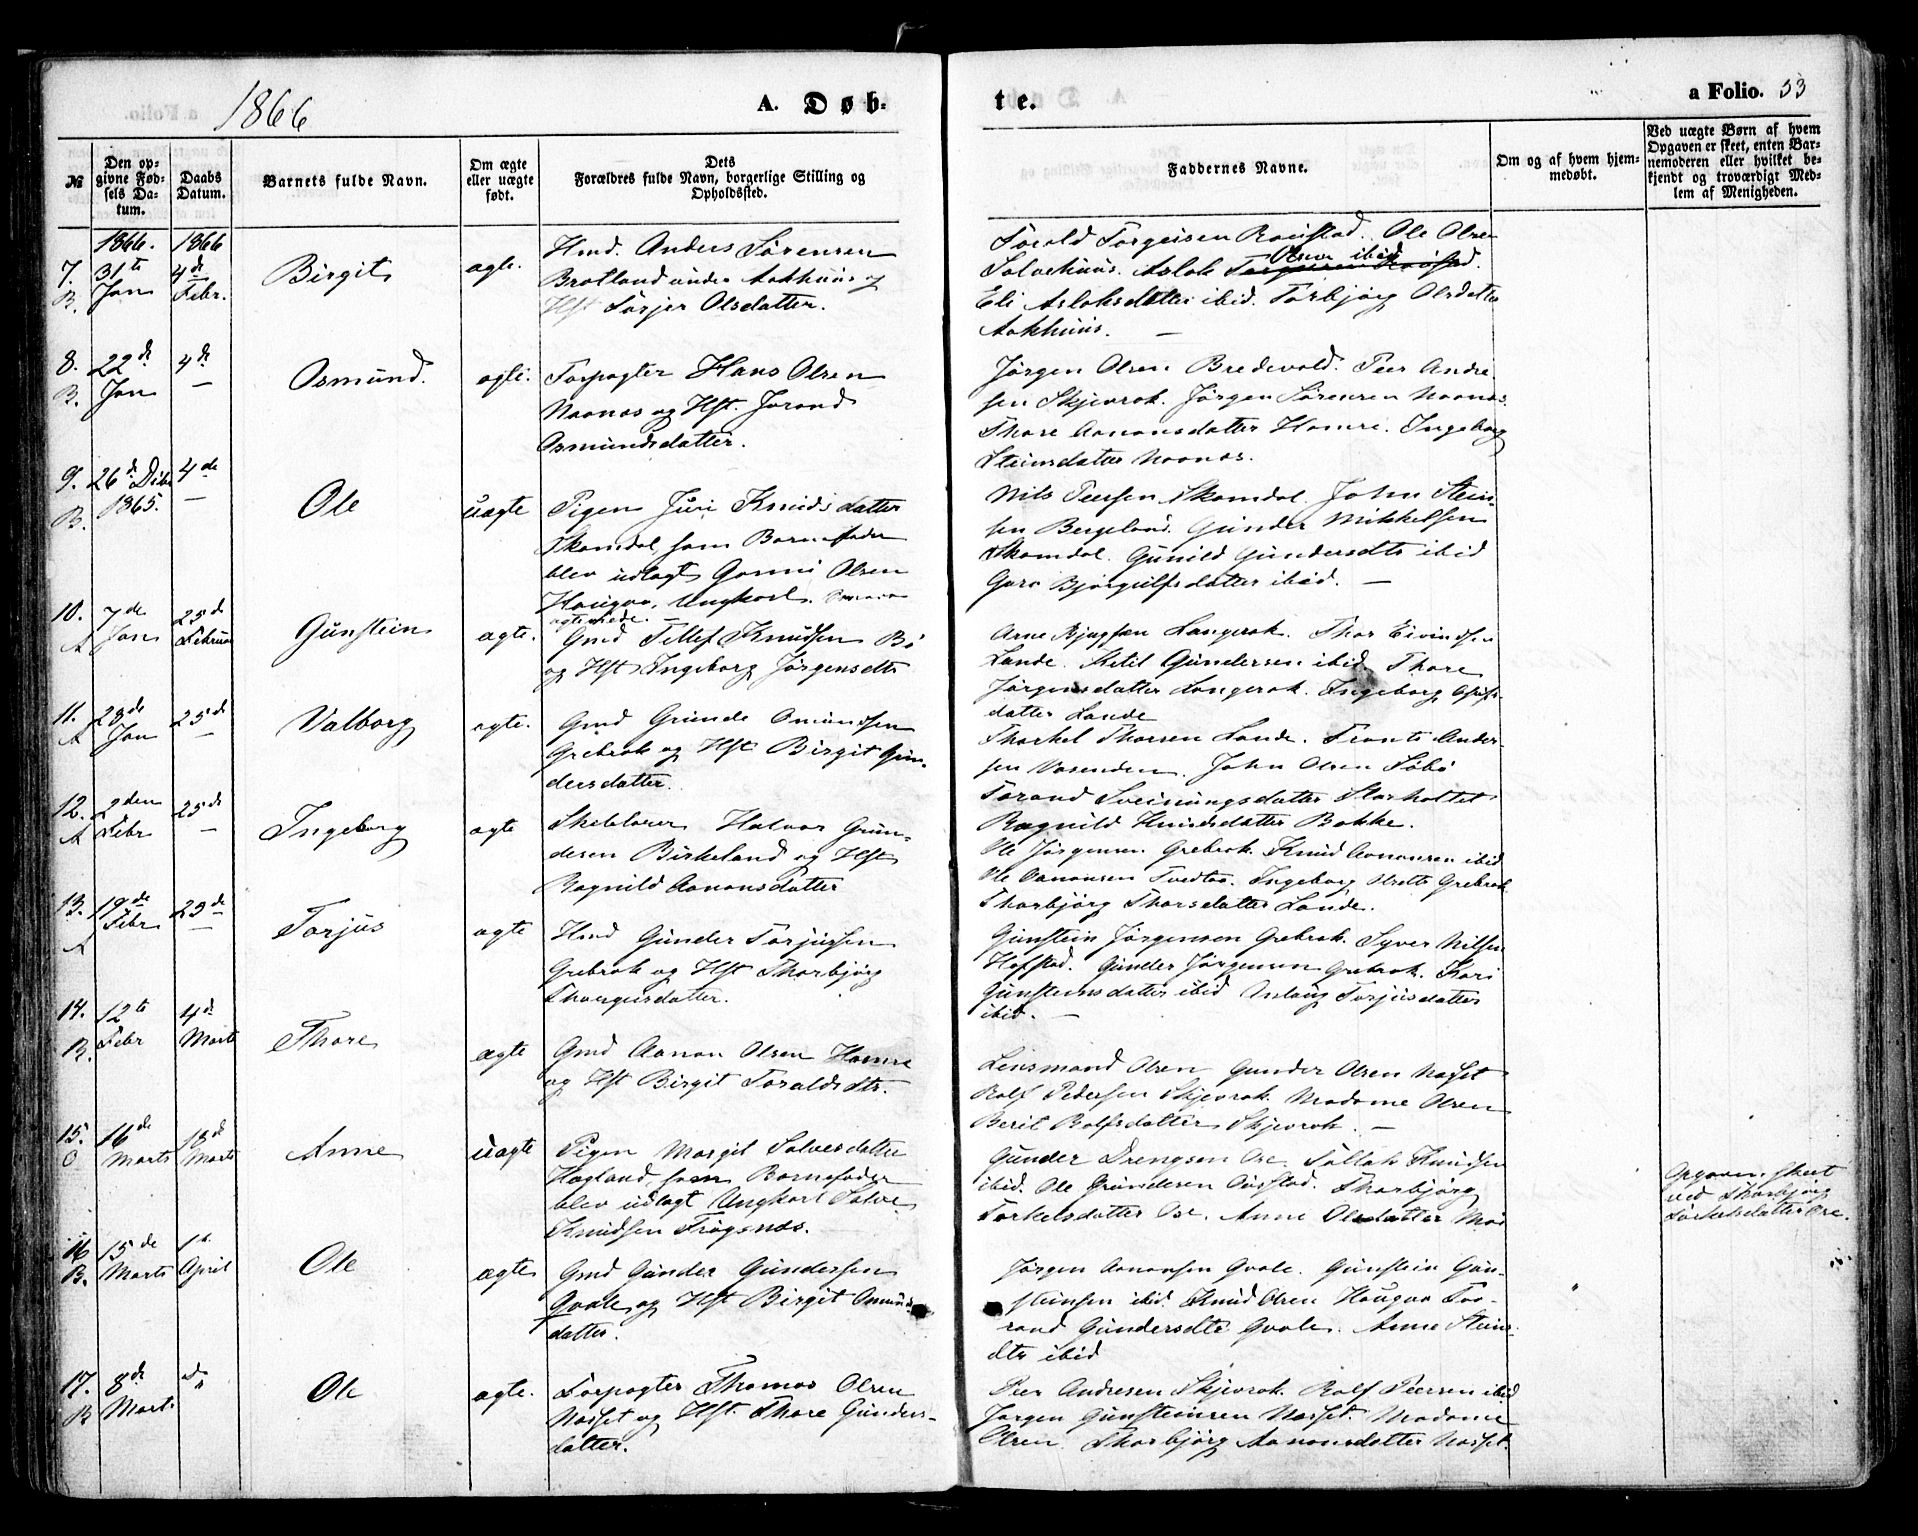 1866
A. Døb-
te.
a Folio. 53
№
Den op-
givne Fød-
sels Da-
tum.
Daabs
Datum.
Barnets fulde Navn.
Om ægte
eller uægte
født.
Dets
Forældres fulde Navn, borgerlige Stilling og
Opholdssted.
Faddernes Navne.
Om og af hvem hjem-
medøbt.
Ved uægte Børn af hvem
Opgaven er skeet, enten Bar-
nemoderen eller hvilket be-
kjendt og troværdigt Med-
lem af Menigheden.
1866. 1866
7. 31te 4de
B. Jan Febr.
Birgit
ægte.
Hmd. Anders Sørensen
Bratland under Aakhuus og
Hst Torjer Olsdatter.
Torald Torgeisen Ole Olsen
Solvehuus. Aslak Olsen ibid
Eli Aslaksdatter ibid. Torbjørg Olsdatter
Aakhuus. —
8. 22de 4de
B. Jan —
Osmund.
ægte.
Forpagter Hans Olsen
Naanas og Hst. Jorand
Osmundsdatter.
Jørgen Olsen Bredvold. Peer Andre-
sen Skjevrak. Jørgen Sørensen Naanas.
Thore Aanonsdatter Homre. Ingeborg
Steinsdatter Naanas.
9. 26de Dcbr 4de
B. 1865. —
Ole
uægte
Pigen Juri Knudsdatter
Skomdal, som Barnefader
blev udlagt Gonni Olsen
Haugaa, Ungkarl.
Nils Peersen Skomdal. John Stein-
sen Bergeland. Gunder Mikkelsen
Skomdal. Gunild Gundersdtr ibid
Guro Bjørgulfsdatter ibid. —
10. 7de 25de
A Jan Februar
Gunstein
ægte.
Gmd Tellef Knudsen Bø
og Hst Ingeborg Jørgensdtr
Arne Langerak. Thor Eivindsen
Lande. Ketil Gundersen ibid Thore
Jørgensdatter Langerak. Ingeborg
datter Lande
11. 28de 25de
A Jan —
Valborg
ægte.
Gmd Gunde Omundsen
Grebrok og Hst Birgit Gun-
dersdatter.
Thorkel Thorsen Lande. Tronts Ander-
sen Vasenden. John Olsen Søbø
Torand Sveinungsdatter Storholtet
Ragnild Knudsdatter Bakke.
12. 2den 25de
A Febr —
Ingeborg
ægte
Skolelærer Halvor Gun-
dersen Birkeland og Hst
Ragnild Aanonsdatter
Ole Jørgensen Grebrok. Knud Aanonsen ibid
Ole Aanonsen Tvedtaa. Ingeborg Grebrok
Thorbjørg Thorsdatter Lande.
13. 19de 25de
A Febr —
Torjus
ægte
Hmd Gunder Torjussen
Grebrok og Hst Thorbjørg
Gunstein Jørgensen Grebrok. Syver Nilsen
Hofstad. Gunder Jørgensen Grebrok. Kari
Gunsteinsdatter ibid Torjusdatter
ibid. —
14. 12te 4de
B. Febr Marts
Thore
ægte
Gmd Aanon Olsen Homre
og Hst Birgit Toraldsdtr.
Lensmand Olsen Gunder Olsen Nasset
Rolf Pedersen Skjevrak. Madame Olsen
Berit Rolfsdatter Skjevrak. —
15. 16de 18de
O Marts Marts
Anne
uægte
Pigen Margit Salvesdatter
Hagland, som Barnefader
blev udlagt Ungkarl Salve
Knudsen Frøysnæs.
Gunder Drengsen Ose. Tallak Knudsen
ibid. Ole Gundersen Austad. Thorbjørg
Torkelsdatter Ose. Anne Olsdatter Moe
Opgaven skeet
ved Thorbjørg
Torkelsdatter Ose.
16 15de 1st
B. Marts April
Ole
ægte
Gmd Gunder Gundersen
Qvale og Hst Birgit Osmunds
datter.
Jørgen Aanonsen Qvale. Gunstein Gun-
steinsen ibid. Knud Olsen Haugaa To-
rand Gundersdtr Qvale. Anne Steins-
dtr ibid
17. 8de do
B Marts
Ole
ægte.
Forpagter Thomas Olsen
Nasset og Hst. Thore Gunders-
datter.
Peer Andresen Skjevrak. Rolf Peersen ibid
Jørgen Gunsteinsen Nasset. Madame
Olsen. Thorbjørg Aanonsdatter Nasset.